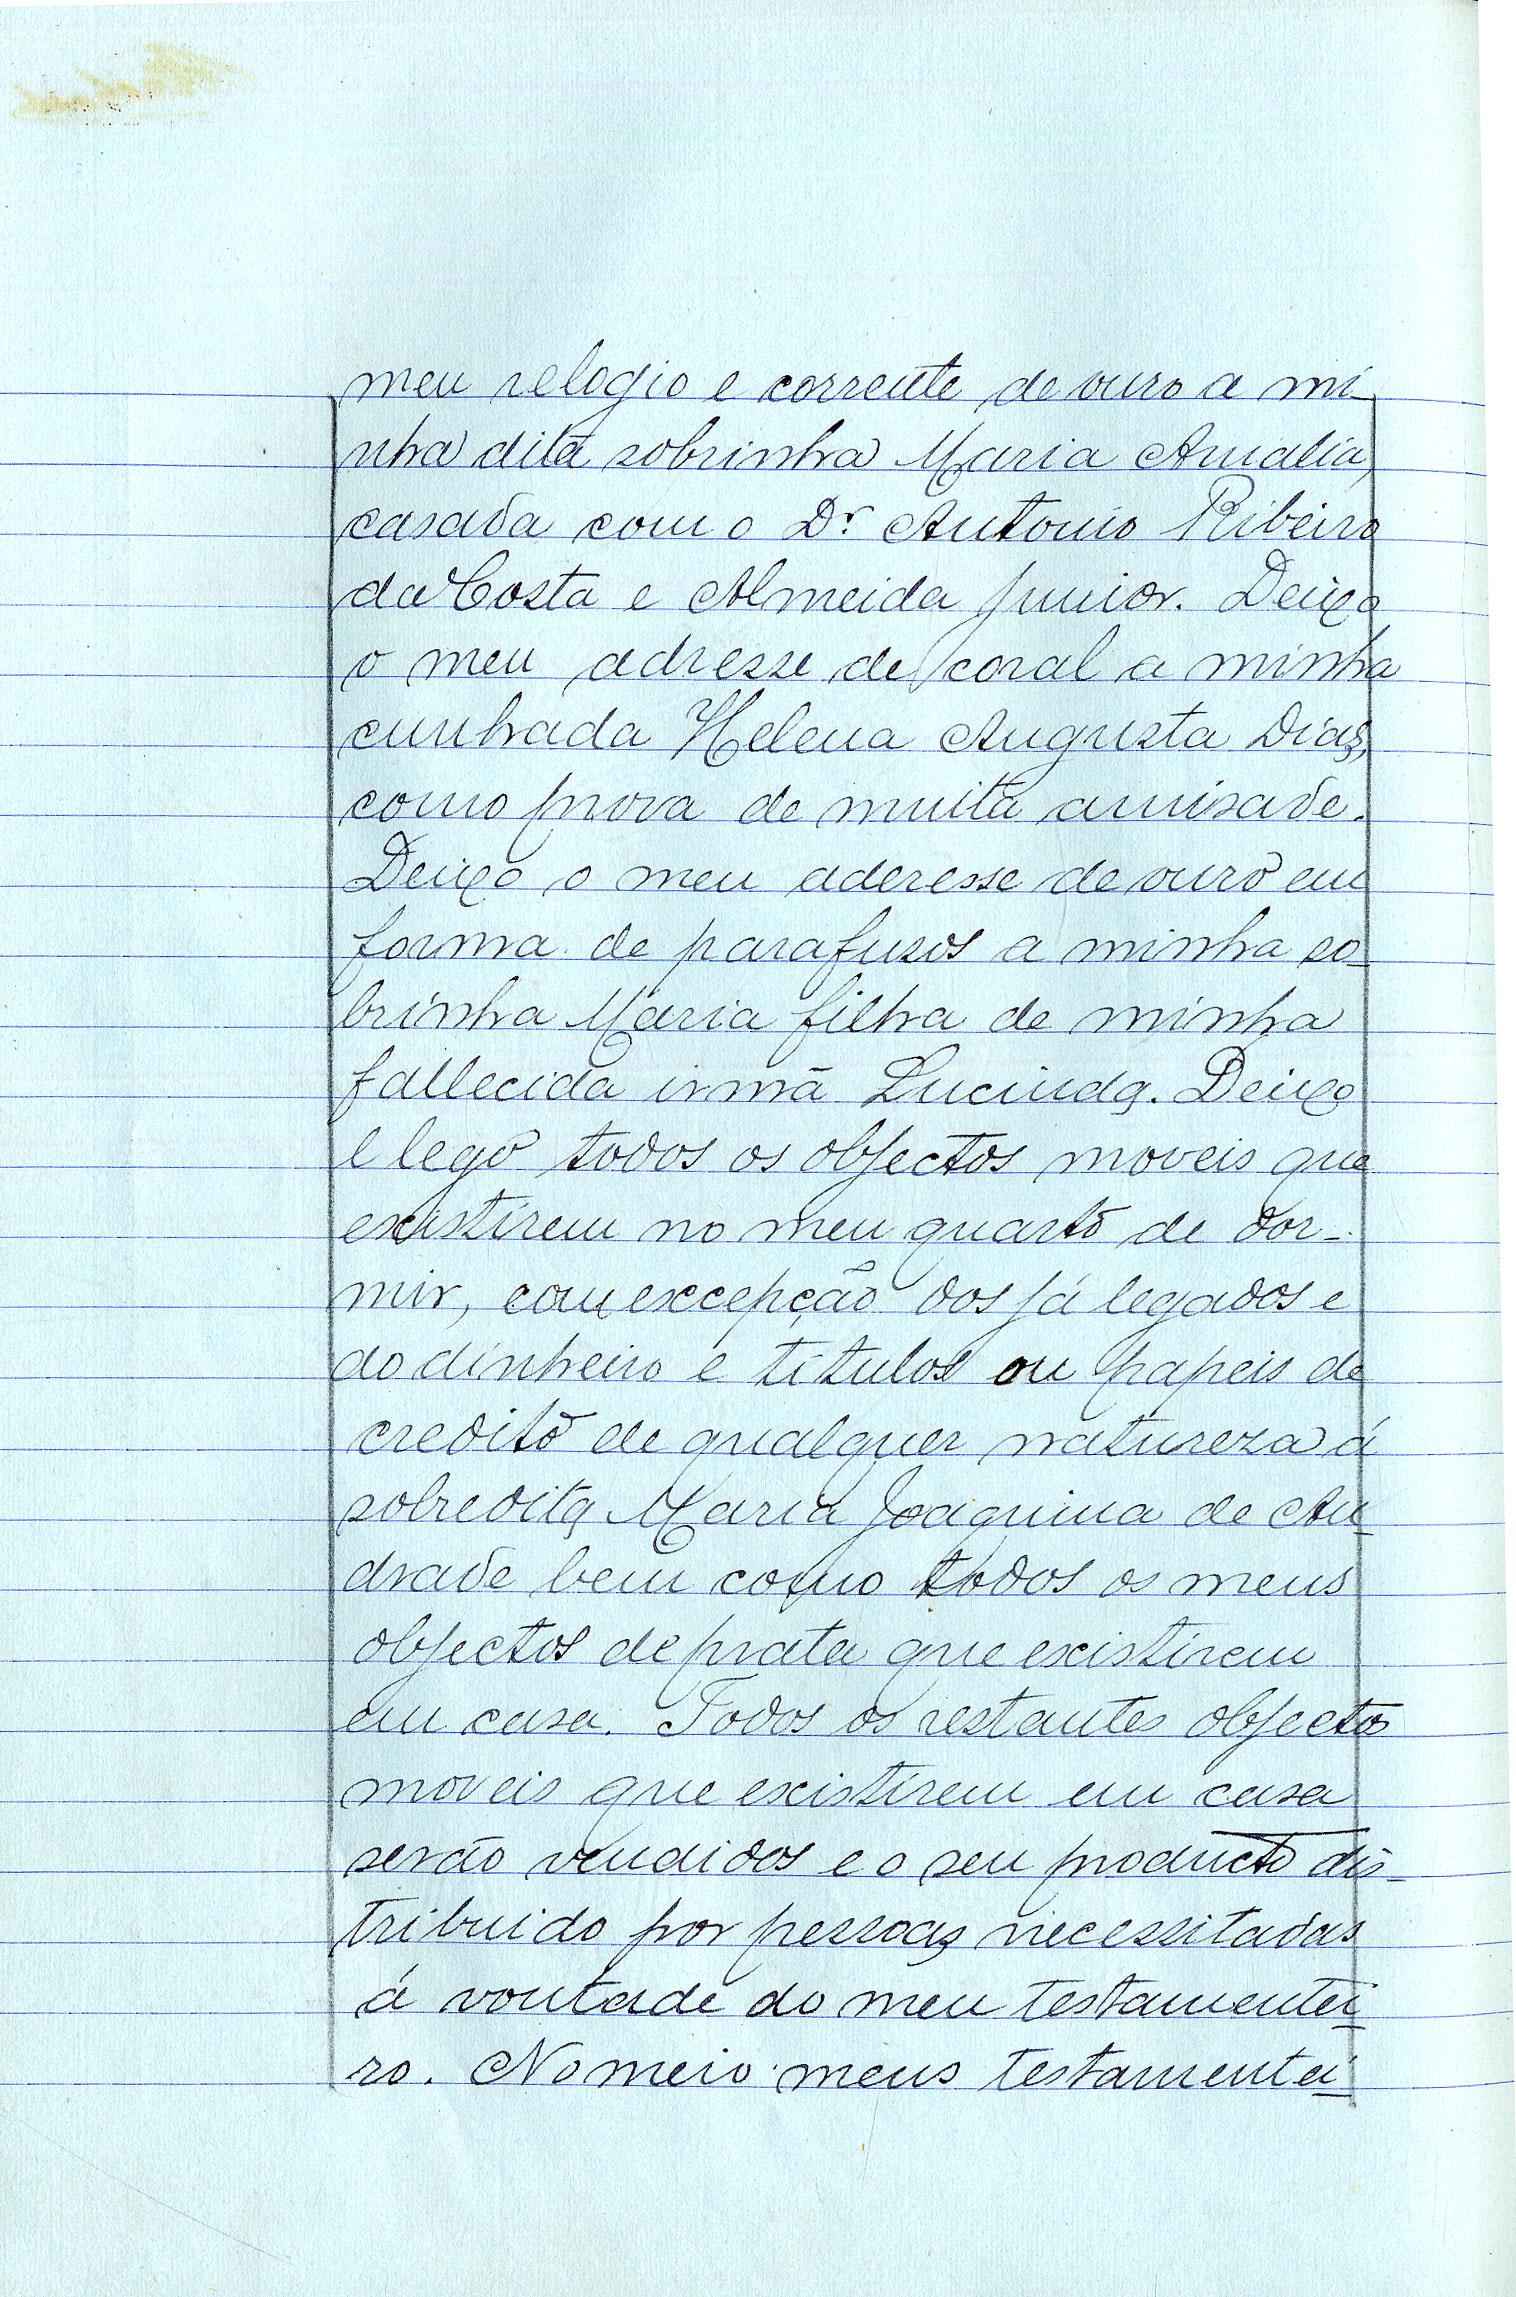 meu relogio e corrente de ouro a mi-
nha dita sobrinha Maria Amalia,
casada com o Dr Antonio Ribeiro
da Costa e Almeida Junior. Deixo
o meu adresse de coral a minha
cunhada Helena Augusta Dias,
como prova de muita amisade.
Deixo o meu aderesse de ouro em
forma de parafusos a minha so-
brinha Maria filha de minha
fallecida irmã Lucinda. Deixo
e lego todos os objectos moveis que
existirem no meu quarto de dor-
mir, com excepção dos já legados e
do dinheiro e titulos ou papeis de
credito de qualquer natureza á
sobredita Maria Joaquina de An-
drade bem como todos os meus
objectos de prata que existirem
em casa. Todos os restantes objectos
moveis que existirem em casa
serão vendidos e o seu producto dis-
tribuido por pessoas necessitadas
á vontade do meu testamentei-
ro. Nomeio meus testamentei-